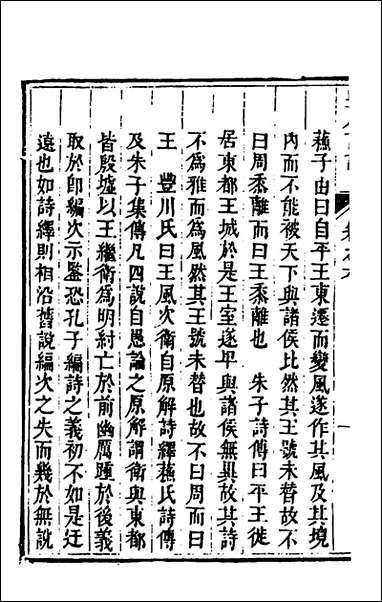 蘓子由曰自平王東遷而變風遂作其風及其境
内而不能被天下與諸侯比然其王號未替故不
曰周黍離而曰王黍離也　朱子詩傳曰平王徙
居東都王城於是王室遂卑與諸侯無異故其詩
不為雅而為風然其王號未替也故不曰周而曰
王　豐川氏曰王風次衛自原解詩繹蘓氏詩傳
及朱子集傳凡四說自愚論之原解謂衛與東都
皆殷墟以王繼衛為明紂亡於前幽厲踵於後義
取於即編次示鑒恐孔子編詩之義初不如是迂
遠也如詩繹則相沿舊說編次之失而幾於無說